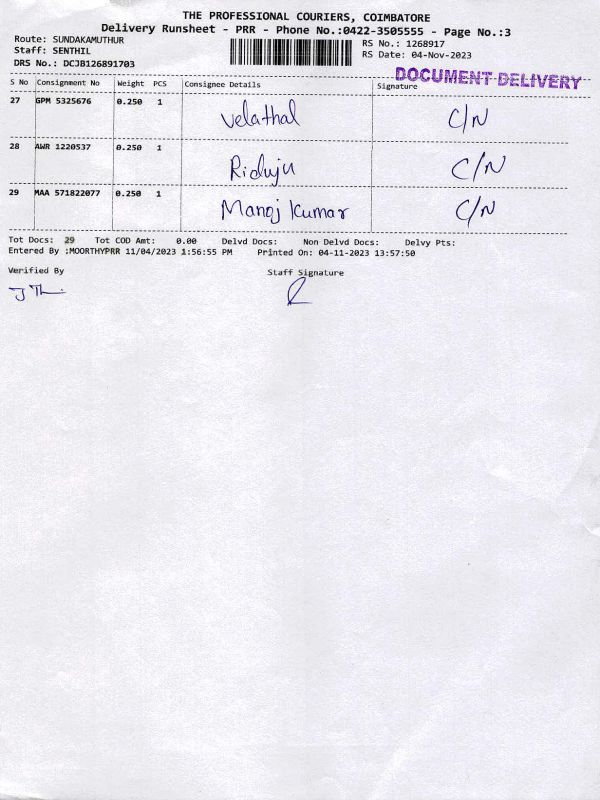 THE PROFESSIONAL COURIERS, COIMBATORE
Delivery Runsheet - PRR - Phone No.:0422-3505555 - Page No.:3
Route: SUNDAKAMUTHUR
RS No.: 1268917
Staff: SENTHIL
RS Date: 04-Nov-2023
DRS No.: DCJB126891703
DOCUMENT DELIVERY
S No Consignment No Weight PCS Consignee Details Signature
27 GPM 5325676 0.250 1 Velathal C/N
28 AWR 1220537 0.250 1 Riduju C/N
29 MAA 571822077 0.250 1 Manoj Kumar C/N
Tot Docs: 29 Tot COD Amt: 0.00 Delvd Docs: Non Delvd Docs: Delvy Pts:
Entered By :MOORTHYPRR 11/04/2023 1:56:55 PM Printed On: 04-11-2023 13:57:50
Verified By Staff Signature